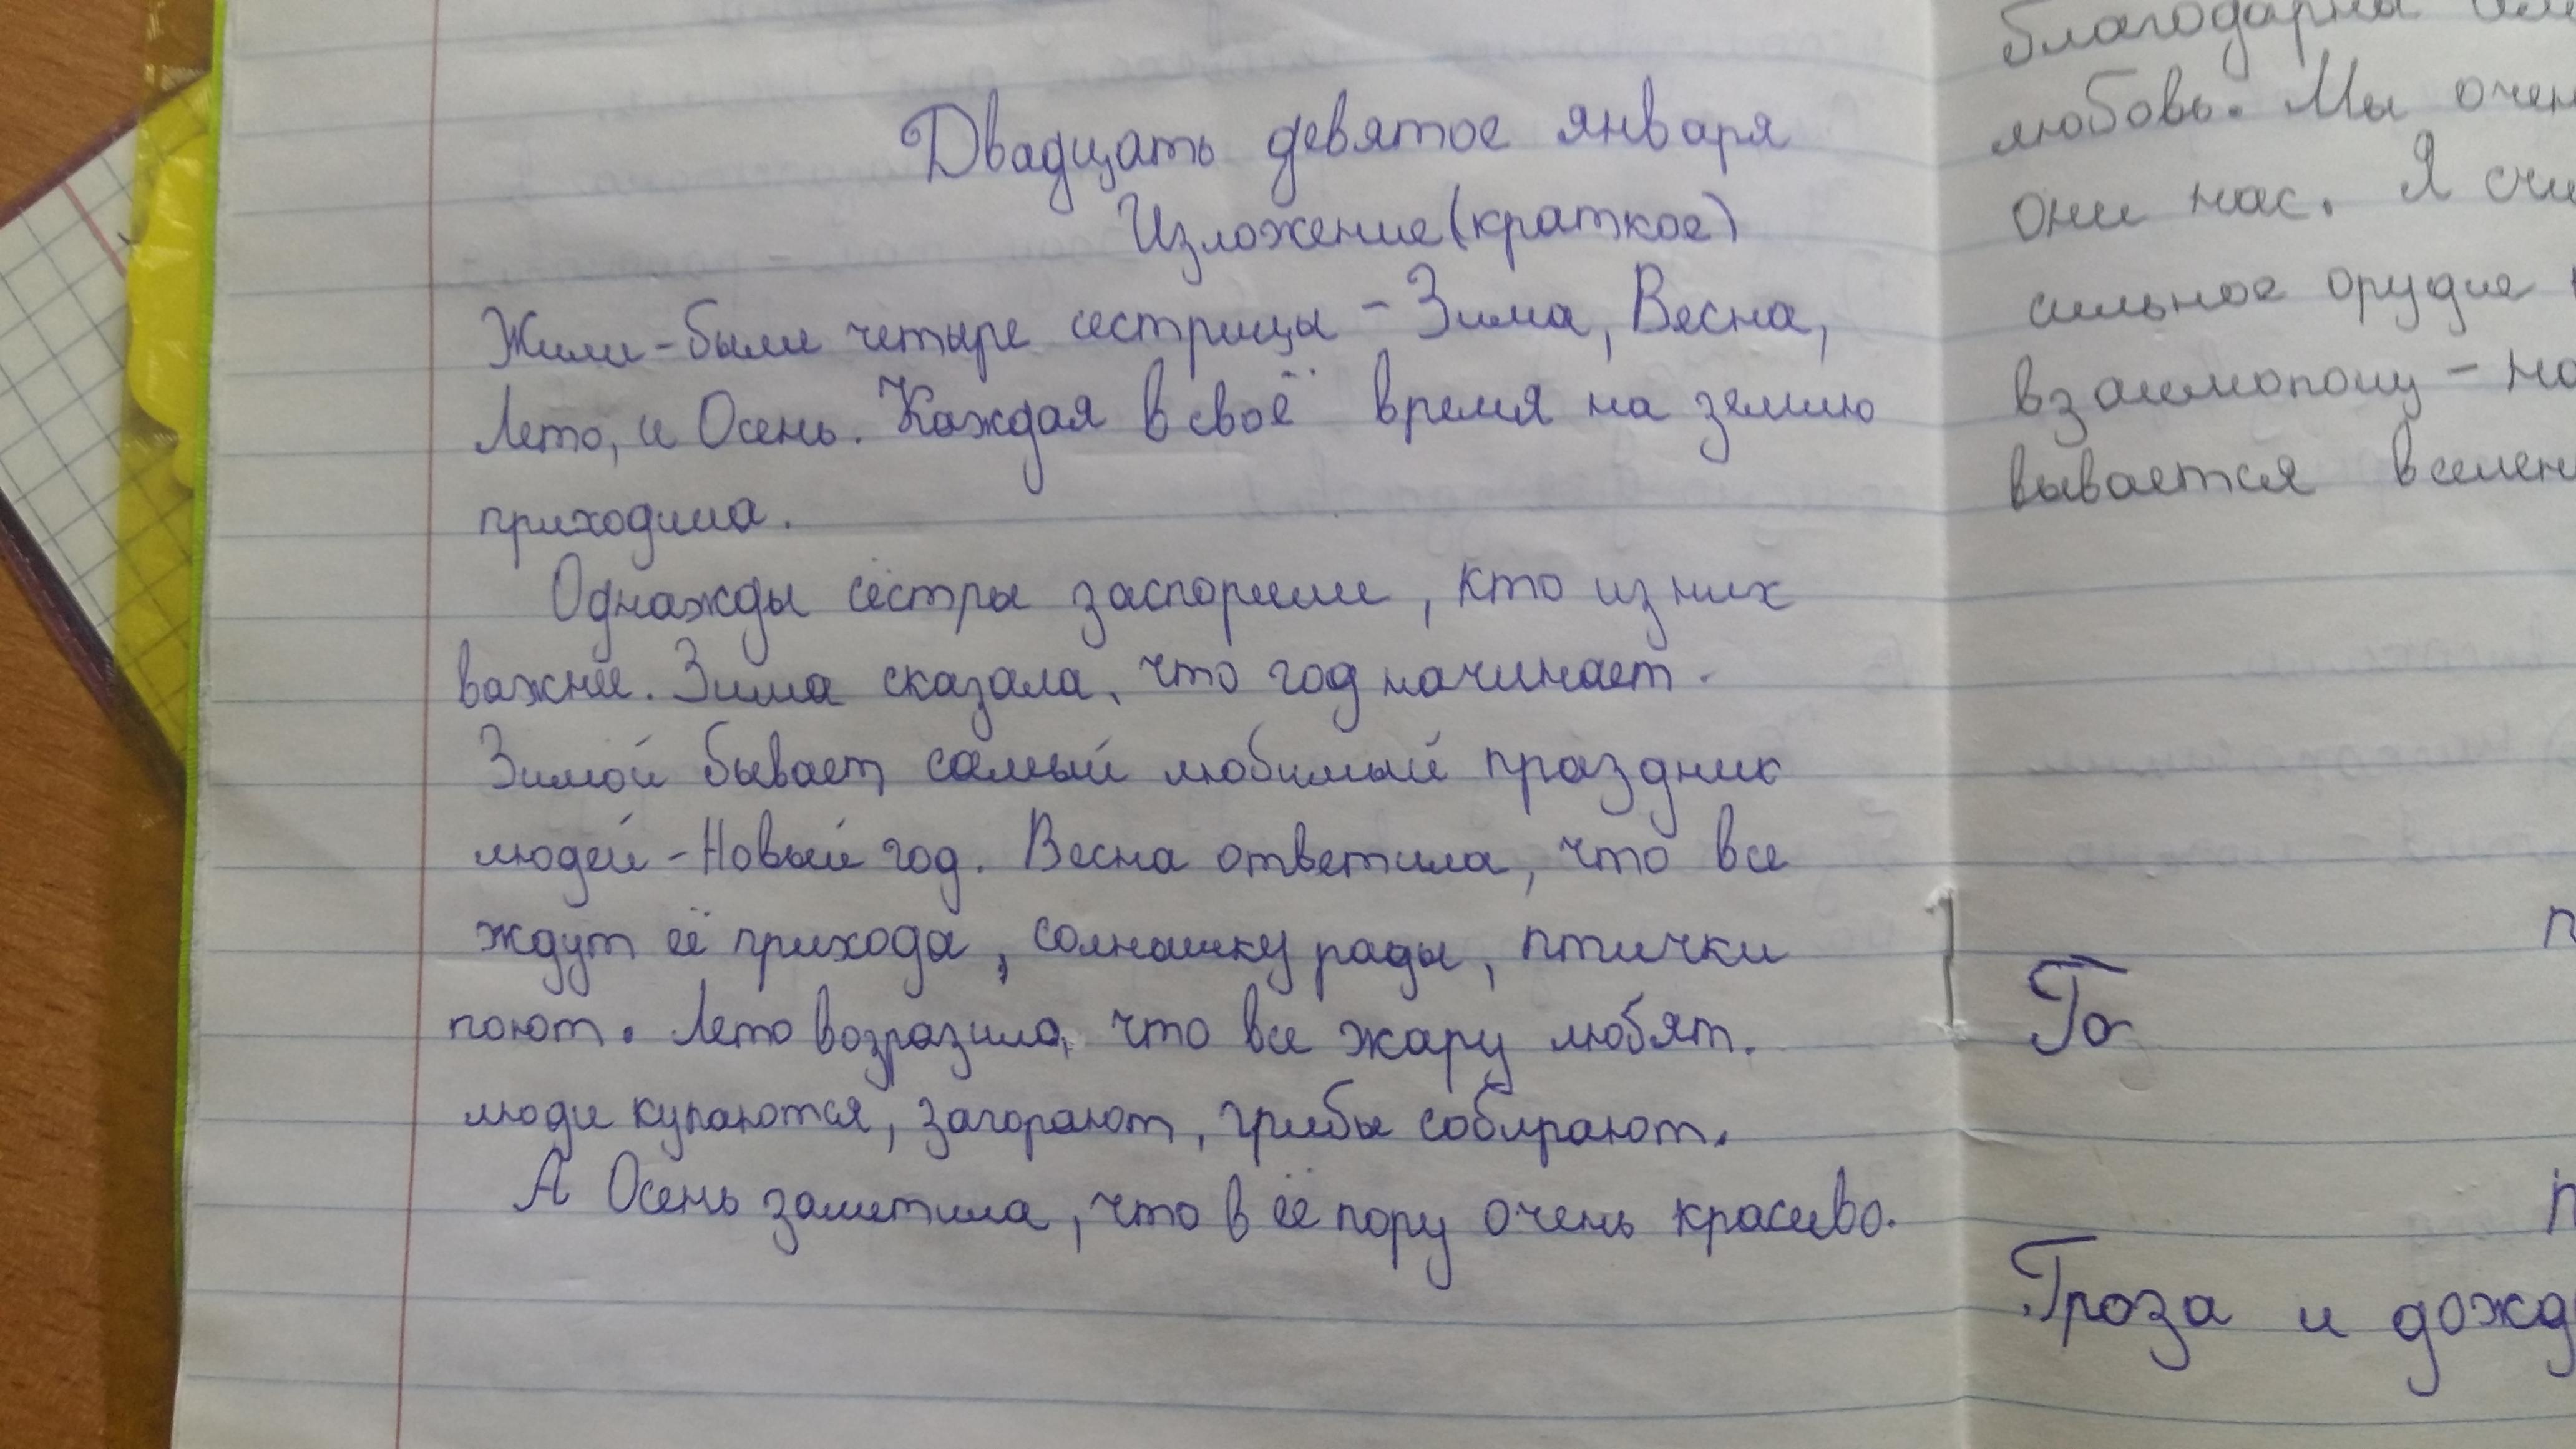 Двадцать девятое января
Изложение (краткое)
Жили-были четыре сестрицы - Зима, Весна,
Лето, и Осень. Каждая в своё время на землю
приходила.
Однажды сёстры заспорили, кто из них
важнее. Зима сказала, что год начинает.
Зимой бывает самый любимый праздник
людей - Новый год. Весна ответила, что все
ждут её прихода, солнышку рады, птички
поют. Лето возразило, что все жару любят.
люди купаются, загорают, грибы собирают.
А Осень заметила, что в её пору очень красиво.
благодарны
любовь. Мы
они нас. Я
сильное орудие
вывается
Го
Гроза и